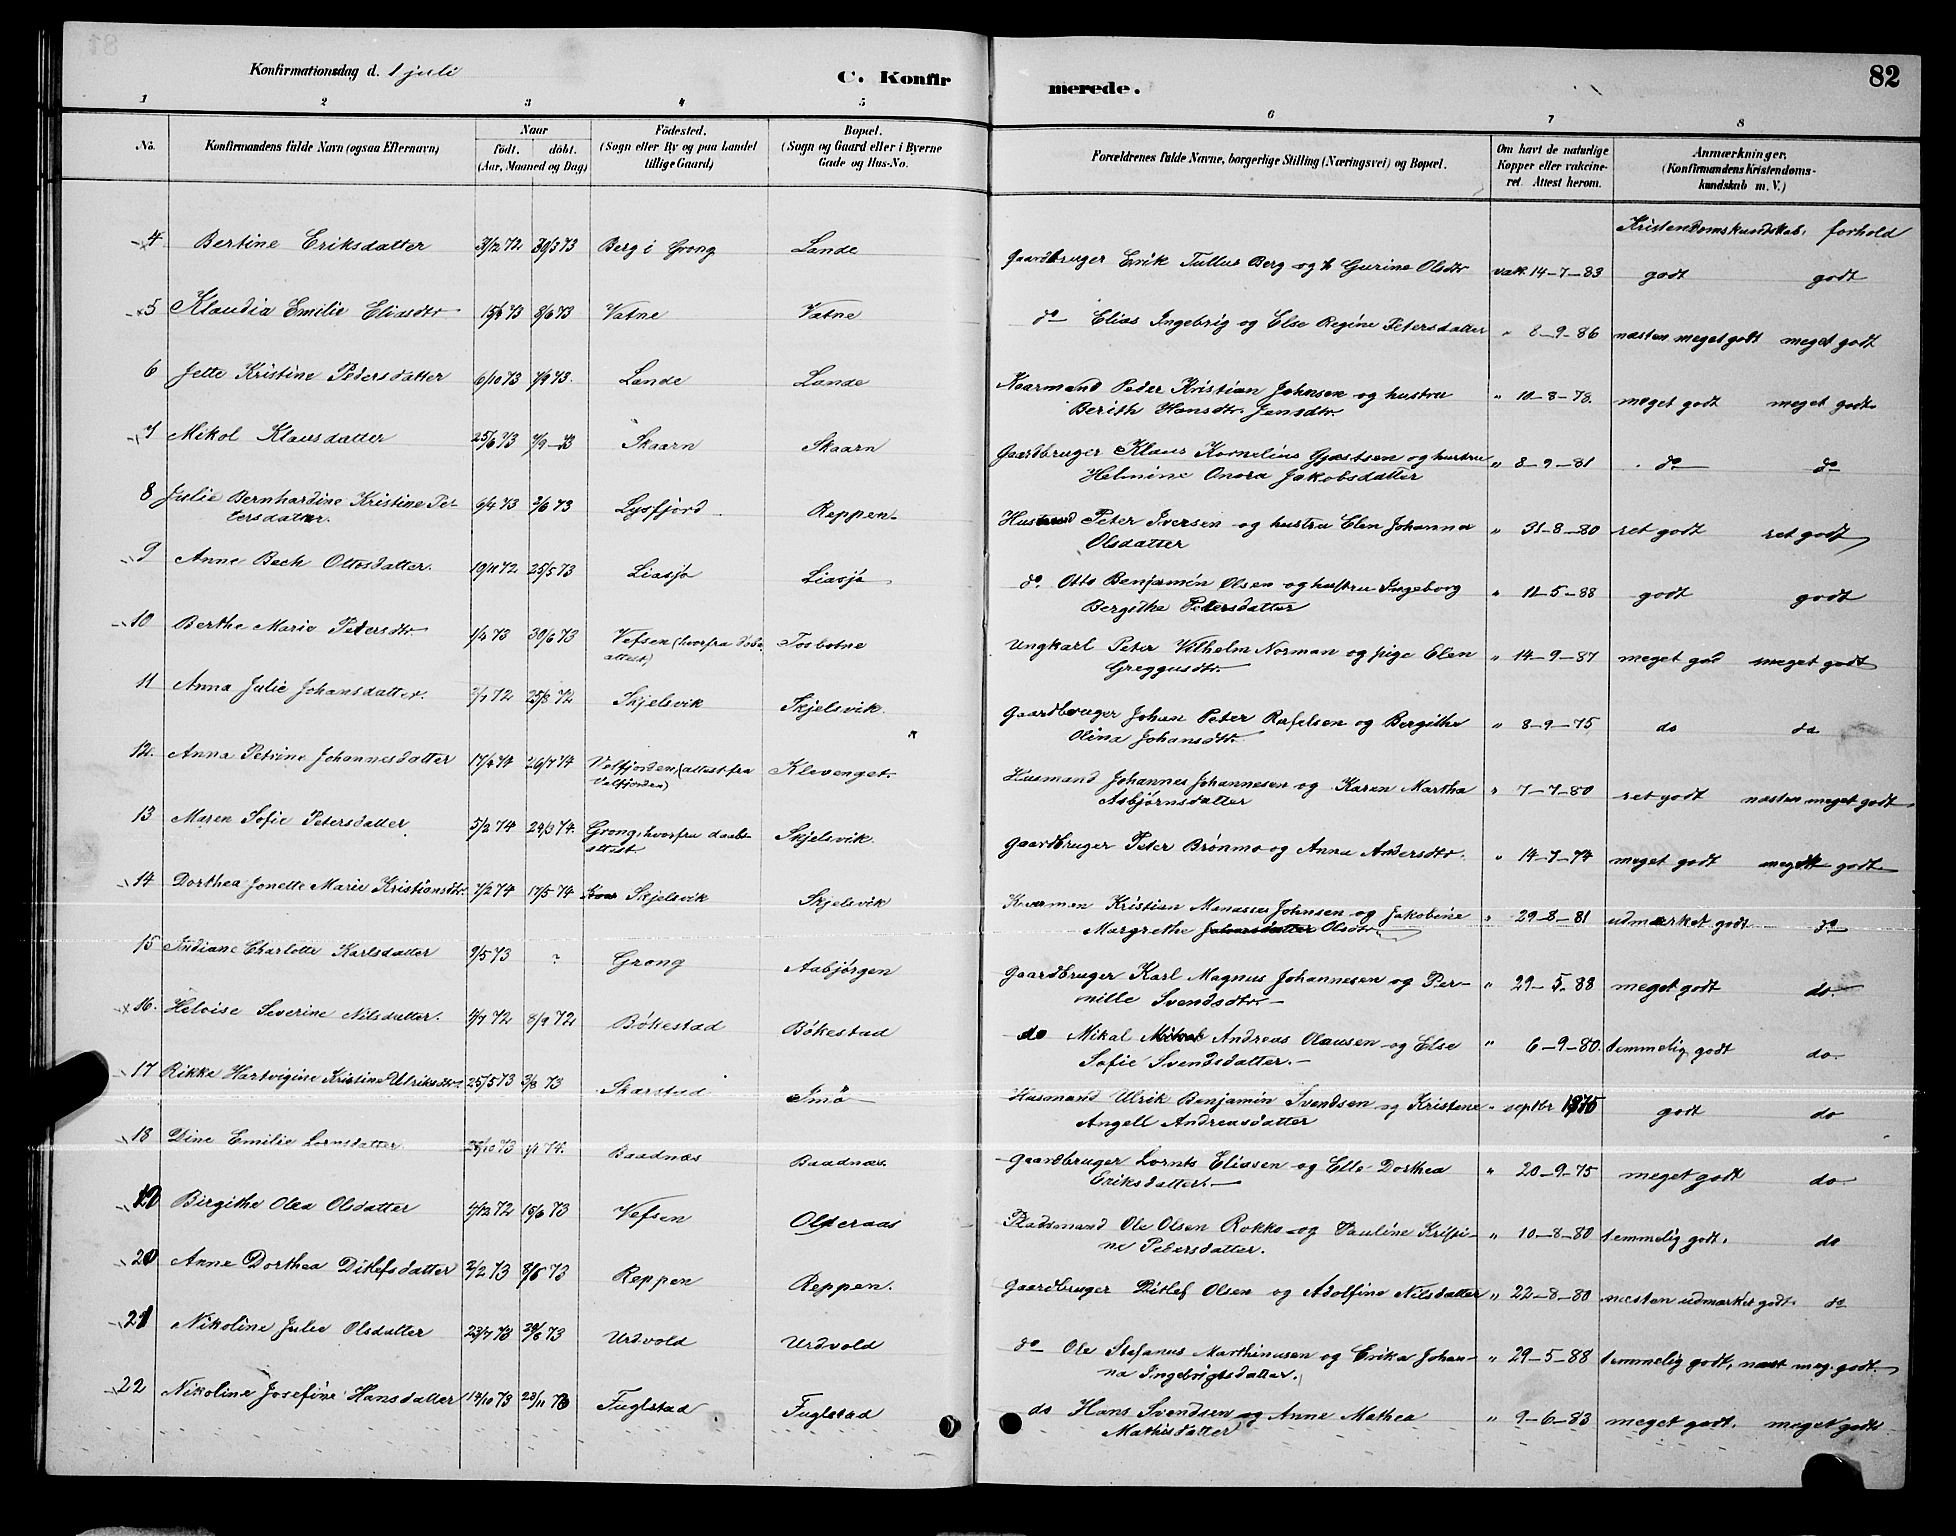 Konfirmationsdag d. 1 juli
C. Konfir
merede.
82
1 2 3 4 5 6 7 8
No.
Konfirmandens fulde Navn (ogsaa Efternavn)
Naar
födt. döbt.
(Aar, Maaned og Dag)
Födested.
(Sogn eller By og paa Landet
tillige Gaard)
Bopæl.
(Sogn og Gaard eller i Byerne
Gade og Hus-No.
Forældrenes fulde Navne, borgerlige Stilling (Næringsvei) og Bopæl.
Om havt de naturlige
Kopper eller vakcine-
ret. Attest herom.
Anmærkninger.
(Konfirmandens Kristendoms-
kundskab m. V.)
Kristendomskundskab. forhold
4 Bertine Eriksdatter 31/12 72 30/3 73 Berg i Grong Lande Gaardbruger Erik Tullus Berg og h Gurine Olsdtr vak. 14-7-83 godt godt
5 Klaudia Emilie Eliasdtr 15/4 73 8/6 73 Vatne Vatne do Elias Ingebrig og Else Regine Petersdatter " 8-9-86 næsten meget godt meget godt
6 Jette Kristine Pedersdatter 6/10 73 Lande Lande Kaarmand Peder Kristian Johnsen og hustru " 11-8-78. meget godt meget godt
Berith Hansdtr. Jensdtr.
7 Mikol Klausdatter 25/6 73 7/9-73 Skaarn Skaarn Gaardbruger Klaus Kornelius Gjætsen og hustru " 8-9-81 do do
Helmine Onora Jakobsdatter
8 Julie Bernhardine Kristine Pe- 6/4 73 2/6 73 Lysfjord Reppen Husmand Peter Iversen og hustru Elen Johanna " 31-8-80 ret godt ret godt
tersdatter. Olsdatter
9 Anne Bech Ottosdatter. 19/11 72 25/5 73 Liasjø Liasjø do. Otto Benjamin Olsen og hustru Ingeborg " 11-5-88 godt godt
Bergithe Petersdatter
10 Berthe Marie Petersdtr 1/4 73 30/6 73 Vefsen (hvorfra døbe- Tosbotne Ungkarl Peter Vilhelm Norman og pige Elen " 14-9-87 meget god meget godt
attest) Greggusdtr.
11 Anna Julie Johansdatter. 2/7 72 25/8 72 Skjelsvik Skjelsvik. Gaardbruger Johan Peter Rafelsen og Bergithe " 8-9-75 do do
Olina Johansdtr.
12. Anna Petrine Johannesdatter 17/4 74 26/7 74 Velfjorden, (attest fra Klevenget. Husmand Johannes Johannesen og Karen Martha " 7-7-80 ret godt næsten meget godt
Velfjorden) Asbjørnsdatter
13 Maren Sofie Petersdatter 5/2 74 29/3 74. Grong, hvorfra daabs- Skjelsvik. Gaardbruger Peter Brønmo og Anna Andersdtr. " 14-7-74 meget godt meget godt
attest.
14 Dorthea Jonette Marie Kristiansdtr. 7/2 74 17/5 74 Skjelsvik Skjelsvik Kaarmen Kristian Manasse Johnsen og Jakobine " 29-8-81 udmærket godt do
Margrethe Johansdatter Olsdtr
15 Indiane Charlotte Karlsdatter 9/5 73 ? Grong Aabjørgen Gaardbruger Karl Magnus Johannesen og Per- " 29-5-88 meget godt do.
nille Svendsdtr
16. Heloise Severine Nilsdatter. 4/7 72 8/9 72 Bökestad Bökestad do Nikal Andreas Olausen og Else " 6-9-80. temmelig godt do
Sofie Svendsdatter.
17 Rikke Hartvigine Kristine Ulriksdtr. 25/5 73 3/8 73 Skarstad Imø Husmand Ulrik Benjamin Svendsen og Kristene " septbr 1875 godt do
Angell Andreasdatter
18 Dine Emilie Lorntsdatter 26/10 73 1/1 74. Baadnæs Baadnæs. Gaardbruger Lornts Eliasen og Elle Dorthea " 20-9-75 meget godt do
Eriksdatter.
19 Birgithe Olea Olsdatter 4/12 72 15/6 73 Vefsen Olderaas Pladsmand Ole Olsen Rokko og Pauline Krispi- " 10-8-80 temmelig godt. do
ne Petersdatter.
20 Anne Dorthea Ditlefsdatter 2/2 73 8/6 73 Reppen Reppen. Gaardbruger Ditlef Olsen og Adolfine Nilsdatter " 22-8-80 næsten udmærket godt. do
21 Nikoline Julie Olsdatter 23/7 73 Urdvold Urdvold do Ole Stefanus Marthinusen og Erika Johan- " 29-5-88 temmelig godt, næst meg. godt
na Ingebrigtsdatter.
22 Nikoline Josefine Hansdatter 14/10 73 23/11 73 Fuglstad Fuglstad do Hans Svendsen og Anne Mathea " 9-6-83 meget godt. meget godt
Mathisdatter